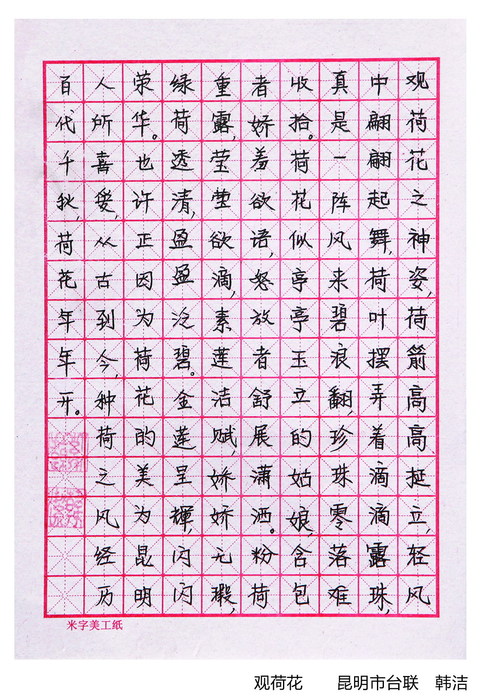 观荷花之神姿,荷箭高高挺立,轻风
中翩翩起舞,荷叶摆弄着滴滴露珠,
真是一阵风来碧浪翻,珍珠零落难
收拾。荷花似亭亭玉立的姑娘,含包
者娇羞欲语,怒放者舒展潇洒。粉荷
重露,莹莹欲滴,素莲洁赋,娇娇无瑕,
绿荷透清,盈盈泛碧。金莲呈輝,闪闪
荣华。也许正因为荷花的美为昆明
人所喜爱,从古到今,种荷之风经历
百代千秋,荷花年年开。
米字美工纸
观荷花 昆明市台联 韩洁